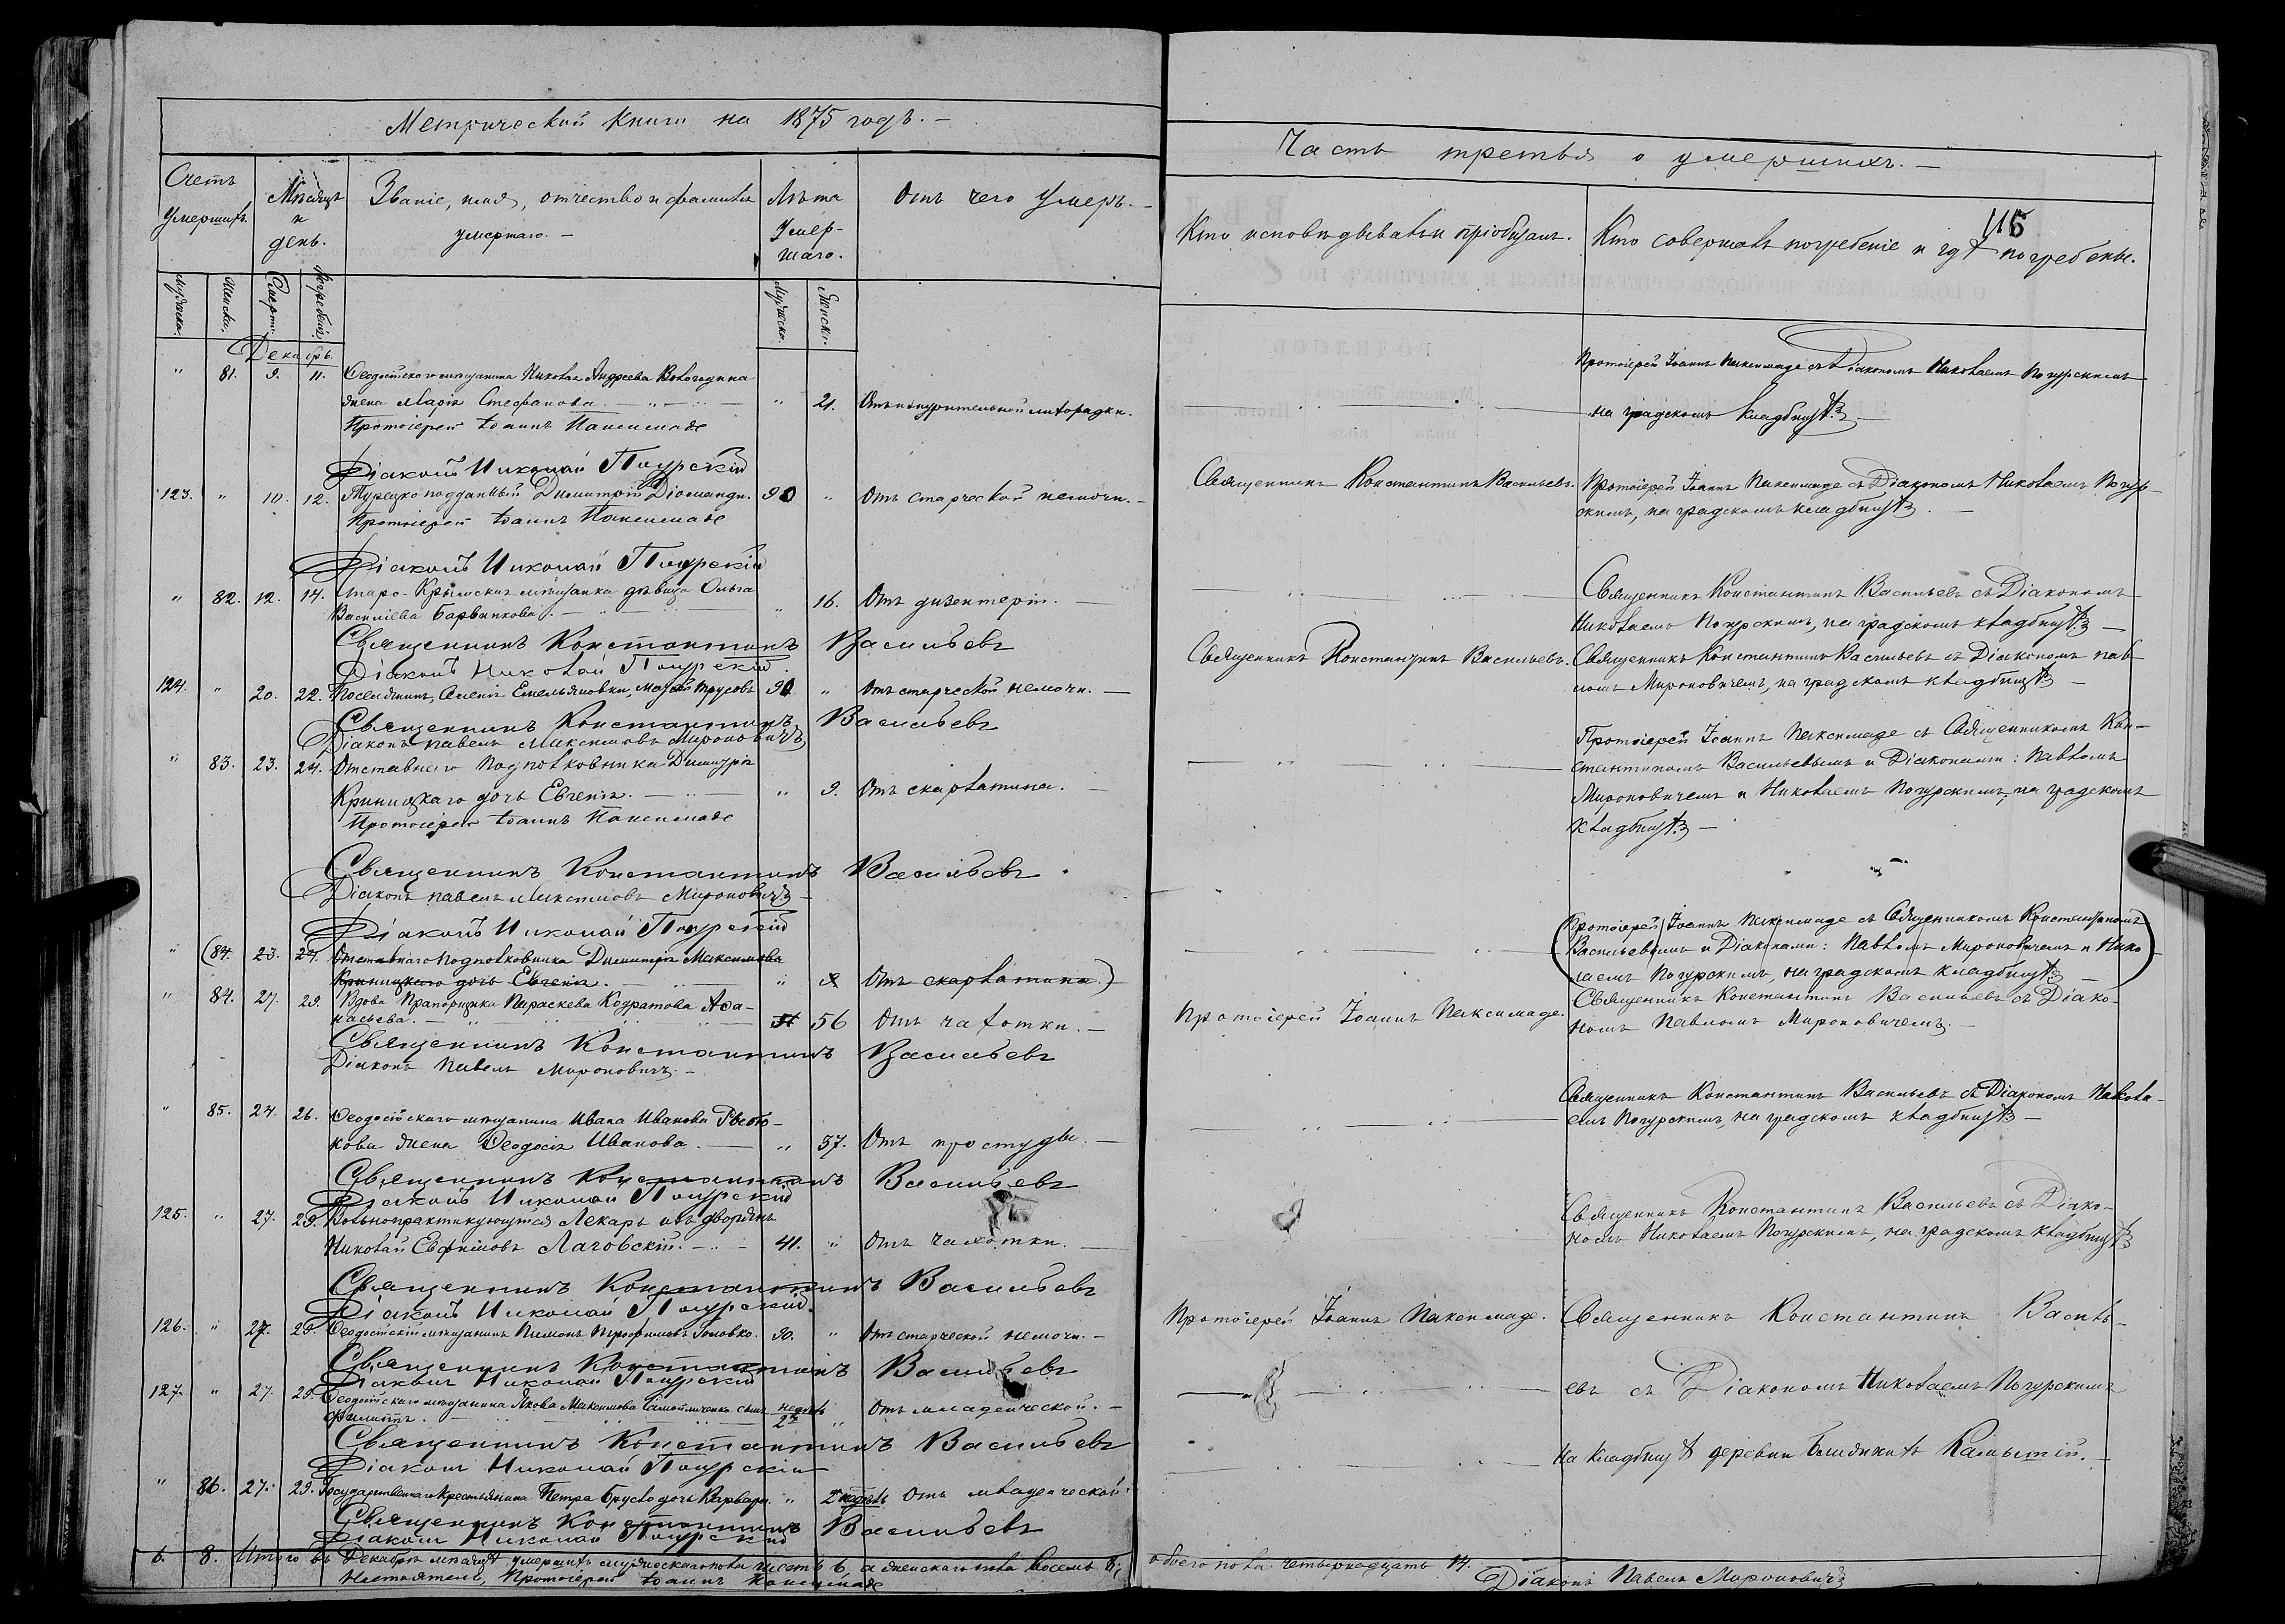 Метрической книги на 1875 годъ. —
Счетъ умершихъ.
Мѣсяцъ и день.
Званіе, имя, отчество и фамилія умершаго. —
Лѣта умершаго.
Отъ чего умеръ. —
Мужеска. Женска. Смерти. Погребенія. Мужеска. Женска.
Декабрь.
" 81. 9. 11. Ѳеодосійскаго мѣщанина Николая Андреева
жена Марія Стефанова. — " 21. Отъ изнурительной лихорадки.
Протоіерей Іоаннъ Паксимаде
Діаконъ Николай Погурскій
123. " 10. 12. Турецко подданный Димитрій Діаманди. 90 " Отъ старческой немочи. —
Протоіерей Іоаннъ Паксимаде
Діаконъ Николай Погурскій
" 82. 12. 14. Старо-Крымская мѣщанка дѣвица Ольга
Василіева Барвинкова. — " 16. Отъ дизентеріи. —
Священникъ Константинъ Васильевъ
Діаконъ Николай Погурскій.
124. " 20. 22. Поселянинъ, селенія Емельяновки, Трусовъ 90 " Отъ старческой немочи. —
Священникъ Константинъ Васильевъ
Діаконъ Павелъ Максимовъ Мироновичъ
" 83. 23. 24. Отставнаго Подполковника Димитрія
Криницкаго дочь Евгенія. — " 9. Отъ скарлатина. —
Протоіерей Іоаннъ Паксимаде
Священникъ Константинъ Васильевъ.
Діаконъ Павелъ Максимовъ Мироновичъ
Діаконъ Николай Погурскій
" (84. 23. 24. Отставнаго Подполковника Димитрія Максимова
Криницкаго дочь Евгенія. — " Отъ скарлатина.)
" 84. 27. 29. Вдова Прапорщика Параскева Кодратова Аѳа-
насьева. — 56 Отъ чахотки. —
Священникъ Константинъ Васильевъ
Діаконъ Павелъ Мироновичъ. —
" 85. 24. 26. Ѳеодосійскаго мѣщанина Ивана Иванова
кова жена Ѳеодосія Иванова. — " 37. Отъ простуды. —
Священникъ Константинъ Васильевъ
Діаконъ Николай Погурскій
125. " 27. 29. Вольнопрактикующійся Лекарь изъ дворянъ
Николай Евфимовъ Лаговскій. — 41. " Отъ чахотки. —
Священникъ Константинъ Васильевъ
Діаконъ Николай Погурскій.
126. " 27. 29. Ѳеодосійскій мѣщанинъ Пименъ Трофимовъ Головко. 90. " Отъ старческой немочи. —
Священникъ Константинъ Васильевъ
Діаконъ Николай Погурскій
127. " 27. 29. Ѳеодосійскаго мѣщанина Якова Максимова сынъ недѣль
Филиппъ. — 2 " Отъ младенческой. —
Священникъ Константинъ Васильевъ
Діаконъ Николай Погурскій
" 86. 27. 29. Государственнаго Крестьянина Петра дочь Варвара. " 2 недѣль Отъ младенческой.
Священникъ Константинъ Васильевъ
Діаконъ Николай Погурскій
6. 8. Итого въ Декабрѣ мѣсяцѣ умершихъ мужескаго пола шесть 6, а женскаго пола восемь 8,
Настоятель, Протоіерей Іоаннъ Паксимаде
Часть третья о умершихъ. —
115
Кто исповѣдывалъ и пріобщалъ.
Кто совершалъ погребеніе и гдѣ погребены.
Протоіерей Іоаннъ Паксимаде съ Діакономъ Николаемъ Погурскимъ
на градскомъ кладбищѣ. —
Священникъ Константинъ Васильевъ. Протоіерей Іоаннъ Паксимаде съ Діакономъ Николаемъ Погур-
скимъ, на градскомъ кладбищѣ. —
Священникъ Константинъ Васильевъ съ Діакономъ
Николаемъ Погурскимъ, на градскомъ кладбищѣ —
Священникъ Константинъ Васильевъ. Священникъ Константинъ Васильевъ съ Діакономъ Пав-
ломъ Мироновичемъ, на градскомъ кладбищѣ —
Протоіерей Іоаннъ Паксимаде съ Священникомъ Кон-
стантиномъ Васильевымъ и Діаконами: Павломъ
Мироновичемъ и Николаемъ Погурскимъ, на градскомъ
кладбищѣ —
(Протоіерей Іоаннъ Паксимаде съ Священникомъ Константиномъ
Васильевымъ и Діаконами: Павломъ Мироновичемъ и Нико-
лаемъ Погурскимъ, на градскомъ кладбищѣ)
Протоіерей Іоаннъ Паксимаде. Священникъ Константинъ Васильевъ съ Діако-
номъ Павломъ Мироновичемъ. —
Священникъ Константинъ Васильевъ съ Діакономъ Никола-
емъ Погурскимъ, на градскомъ кладбищѣ —
Священникъ Константинъ Васильевъ съ Діако-
номъ Николаемъ Погурскимъ, на градскомъ кладбищѣ
Протоіерей Іоаннъ Паксимаде. Священникъ Константинъ Василь-
евъ съ Діакономъ Николаемъ Погурскимъ
на кладбищѣ деревни
обоего пола четырнадцать 14.
Діаконъ Павелъ Мироновичъ